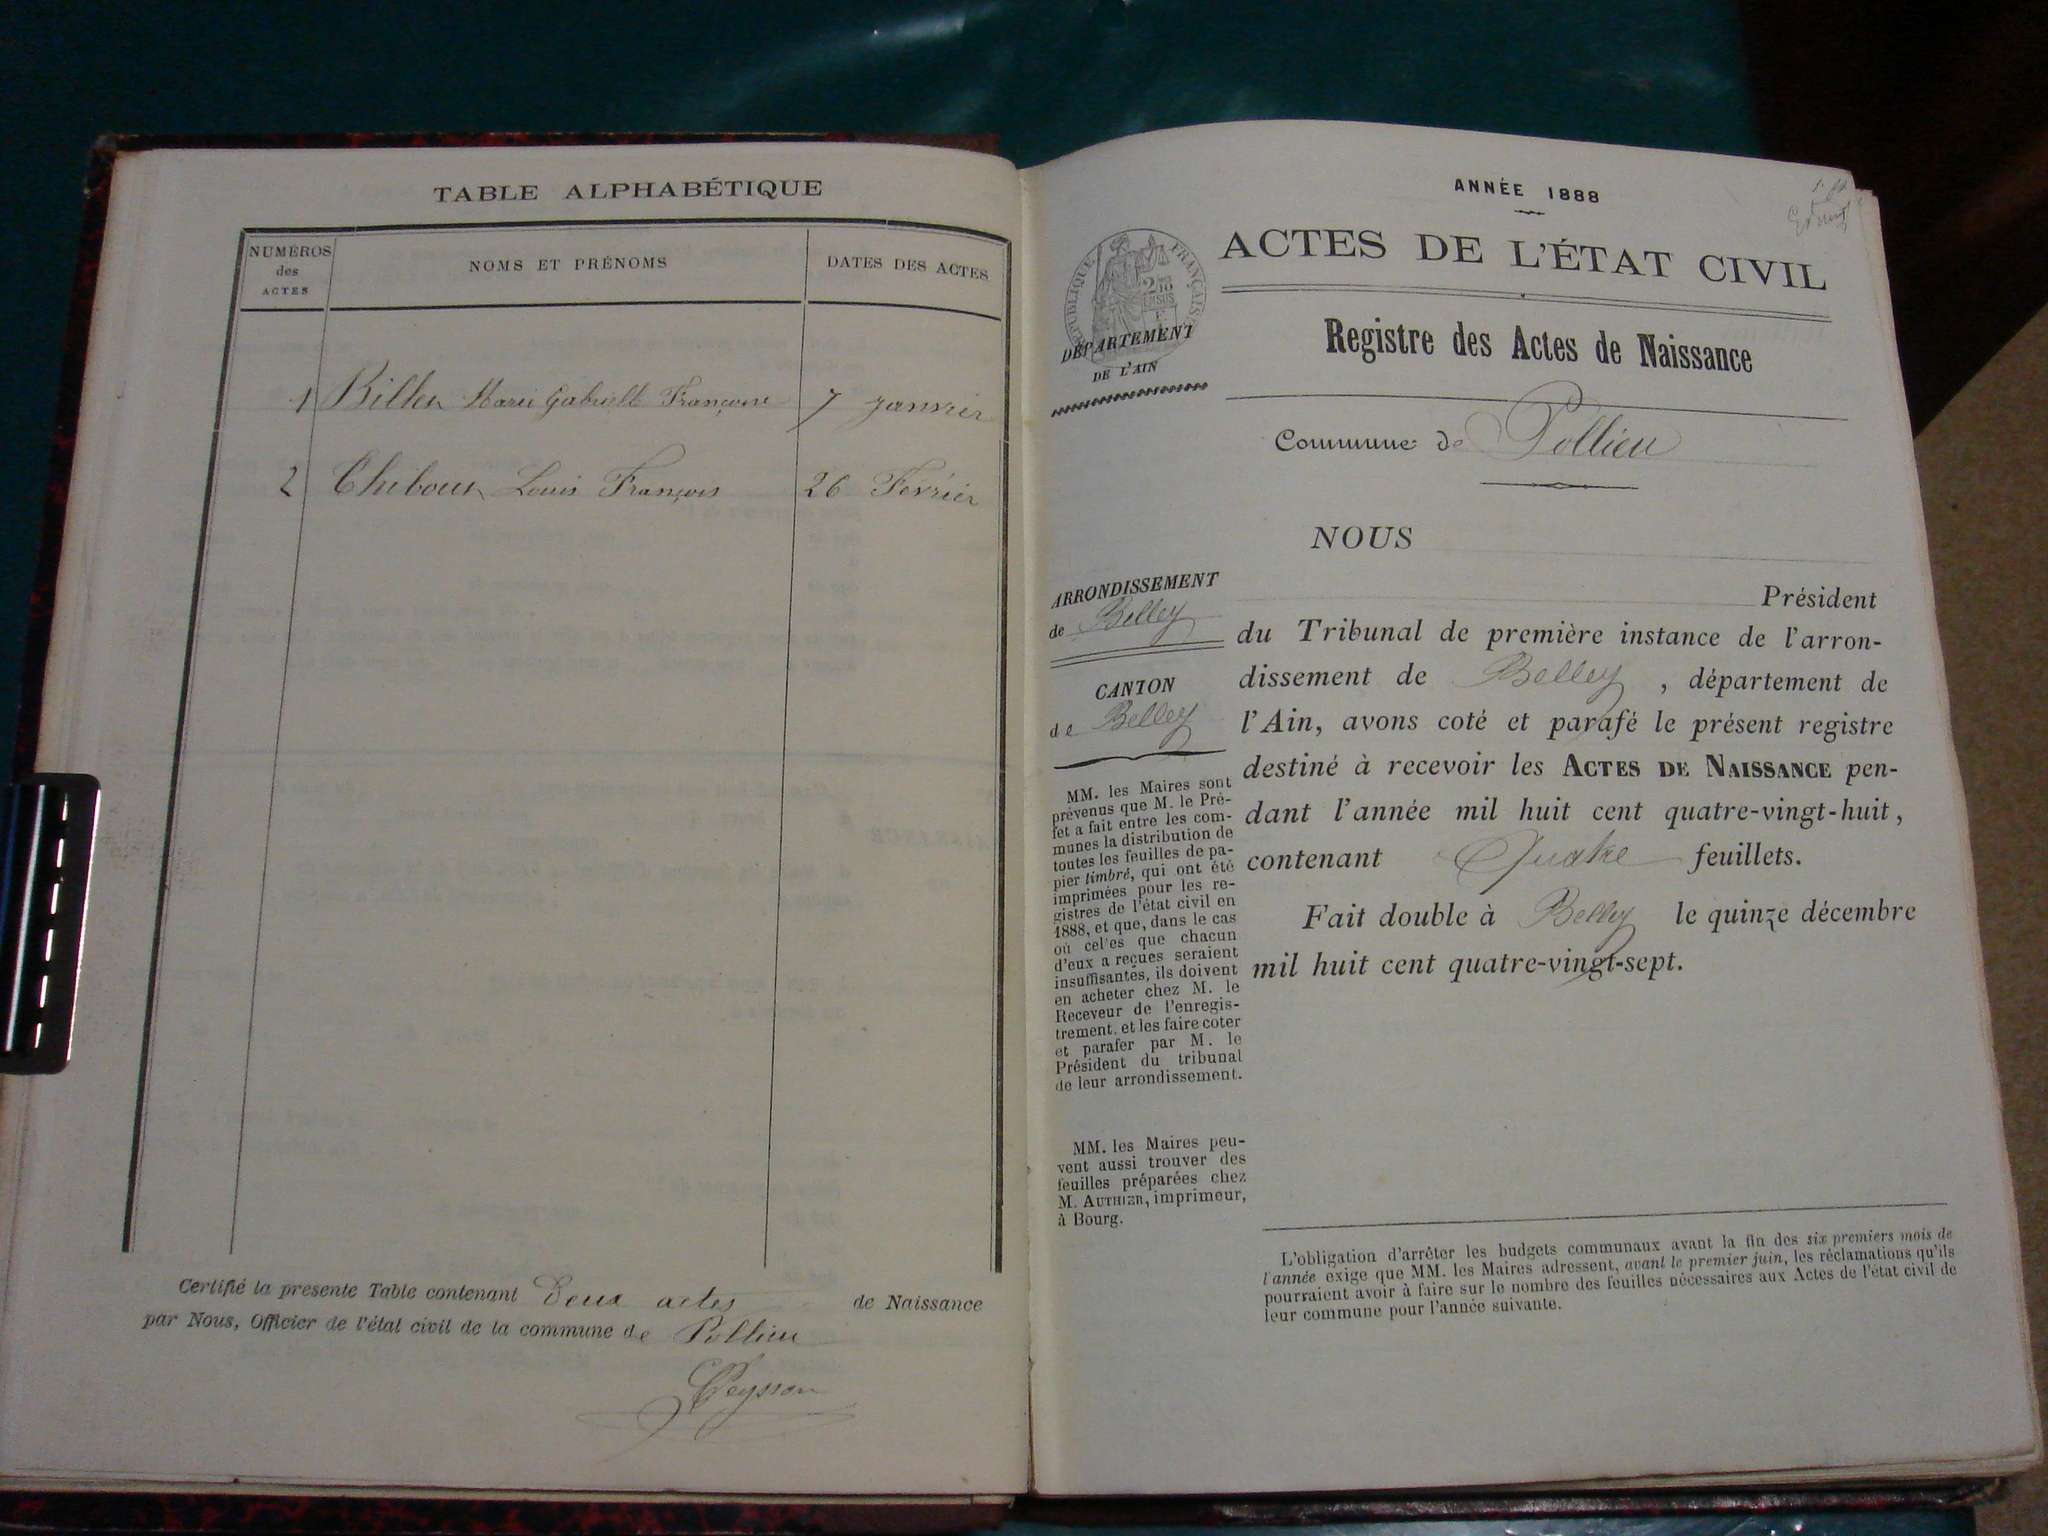 TABLE ALPHABÉTIQUE
NUMÉROS
des
ACTES
NOMS ET PRÉNOMS
DATES DES ACTES
1 Billen Marie Gabrielle Françoise 7 janvier
2 Chiboux Louis François 26 Février
Certifié la presente Table contenant Deux actes de Naissance
par Nous, Officier de l'état civil de la commune de Pollieu
Peysson
ANNÉE 1888
ACTES DE L'ÉTAT CIVIL
RÉPUBLIQUE FRANÇAISE
DÉPARTEMENT
DE L'AIN
Registre des Actes de Naissance
Commune de Pollieu
ARRONDISSEMENT
de Belley
CANTON
de Belley
MM. les Maires sont
prévenus que M. le Pré-
fet a fait entre les com-
munes la distribution de
toutes les feuilles de pa-
pier timbré, qui ont été
imprimées pour les re-
gistres de l'état civil en
1888, et que, dans le cas
où cel'es que chacun
d'eux a reçues seraient
insuffisantes, ils doivent
en acheter chez M. le
Receveur de l'enregis-
trement, et les faire coter
et parafer par M. le
Président du tribunal
de leur arrondissement.
MM. les Maires peu-
vent aussi trouver des
feuilles préparées chez
M. AUTHIER, imprimeur,
à Bourg.
NOUS
Président
du Tribunal de première instance de l'arron-
dissement de Belley, département de
l'Ain, avons coté et parafé le présent registre
destiné à recevoir les ACTES DE NAISSANCE pen-
dant l'année mil huit cent quatre-vingt-huit,
contenant Quatre feuillets.
Fait double à Belley le quinze décembre
mil huit cent quatre-vingt-sept.
L'obligation d'arrêter les budgets communaux avant la fin des six premiers mois de
l'année exige que MM. les Maires adressent, avant le premier juin, les réclamations qu'ils
pourraient avoir à faire sur le nombre des feuilles nécessaires aux Actes de l'état civil de
leur commune pour l'année suivante.